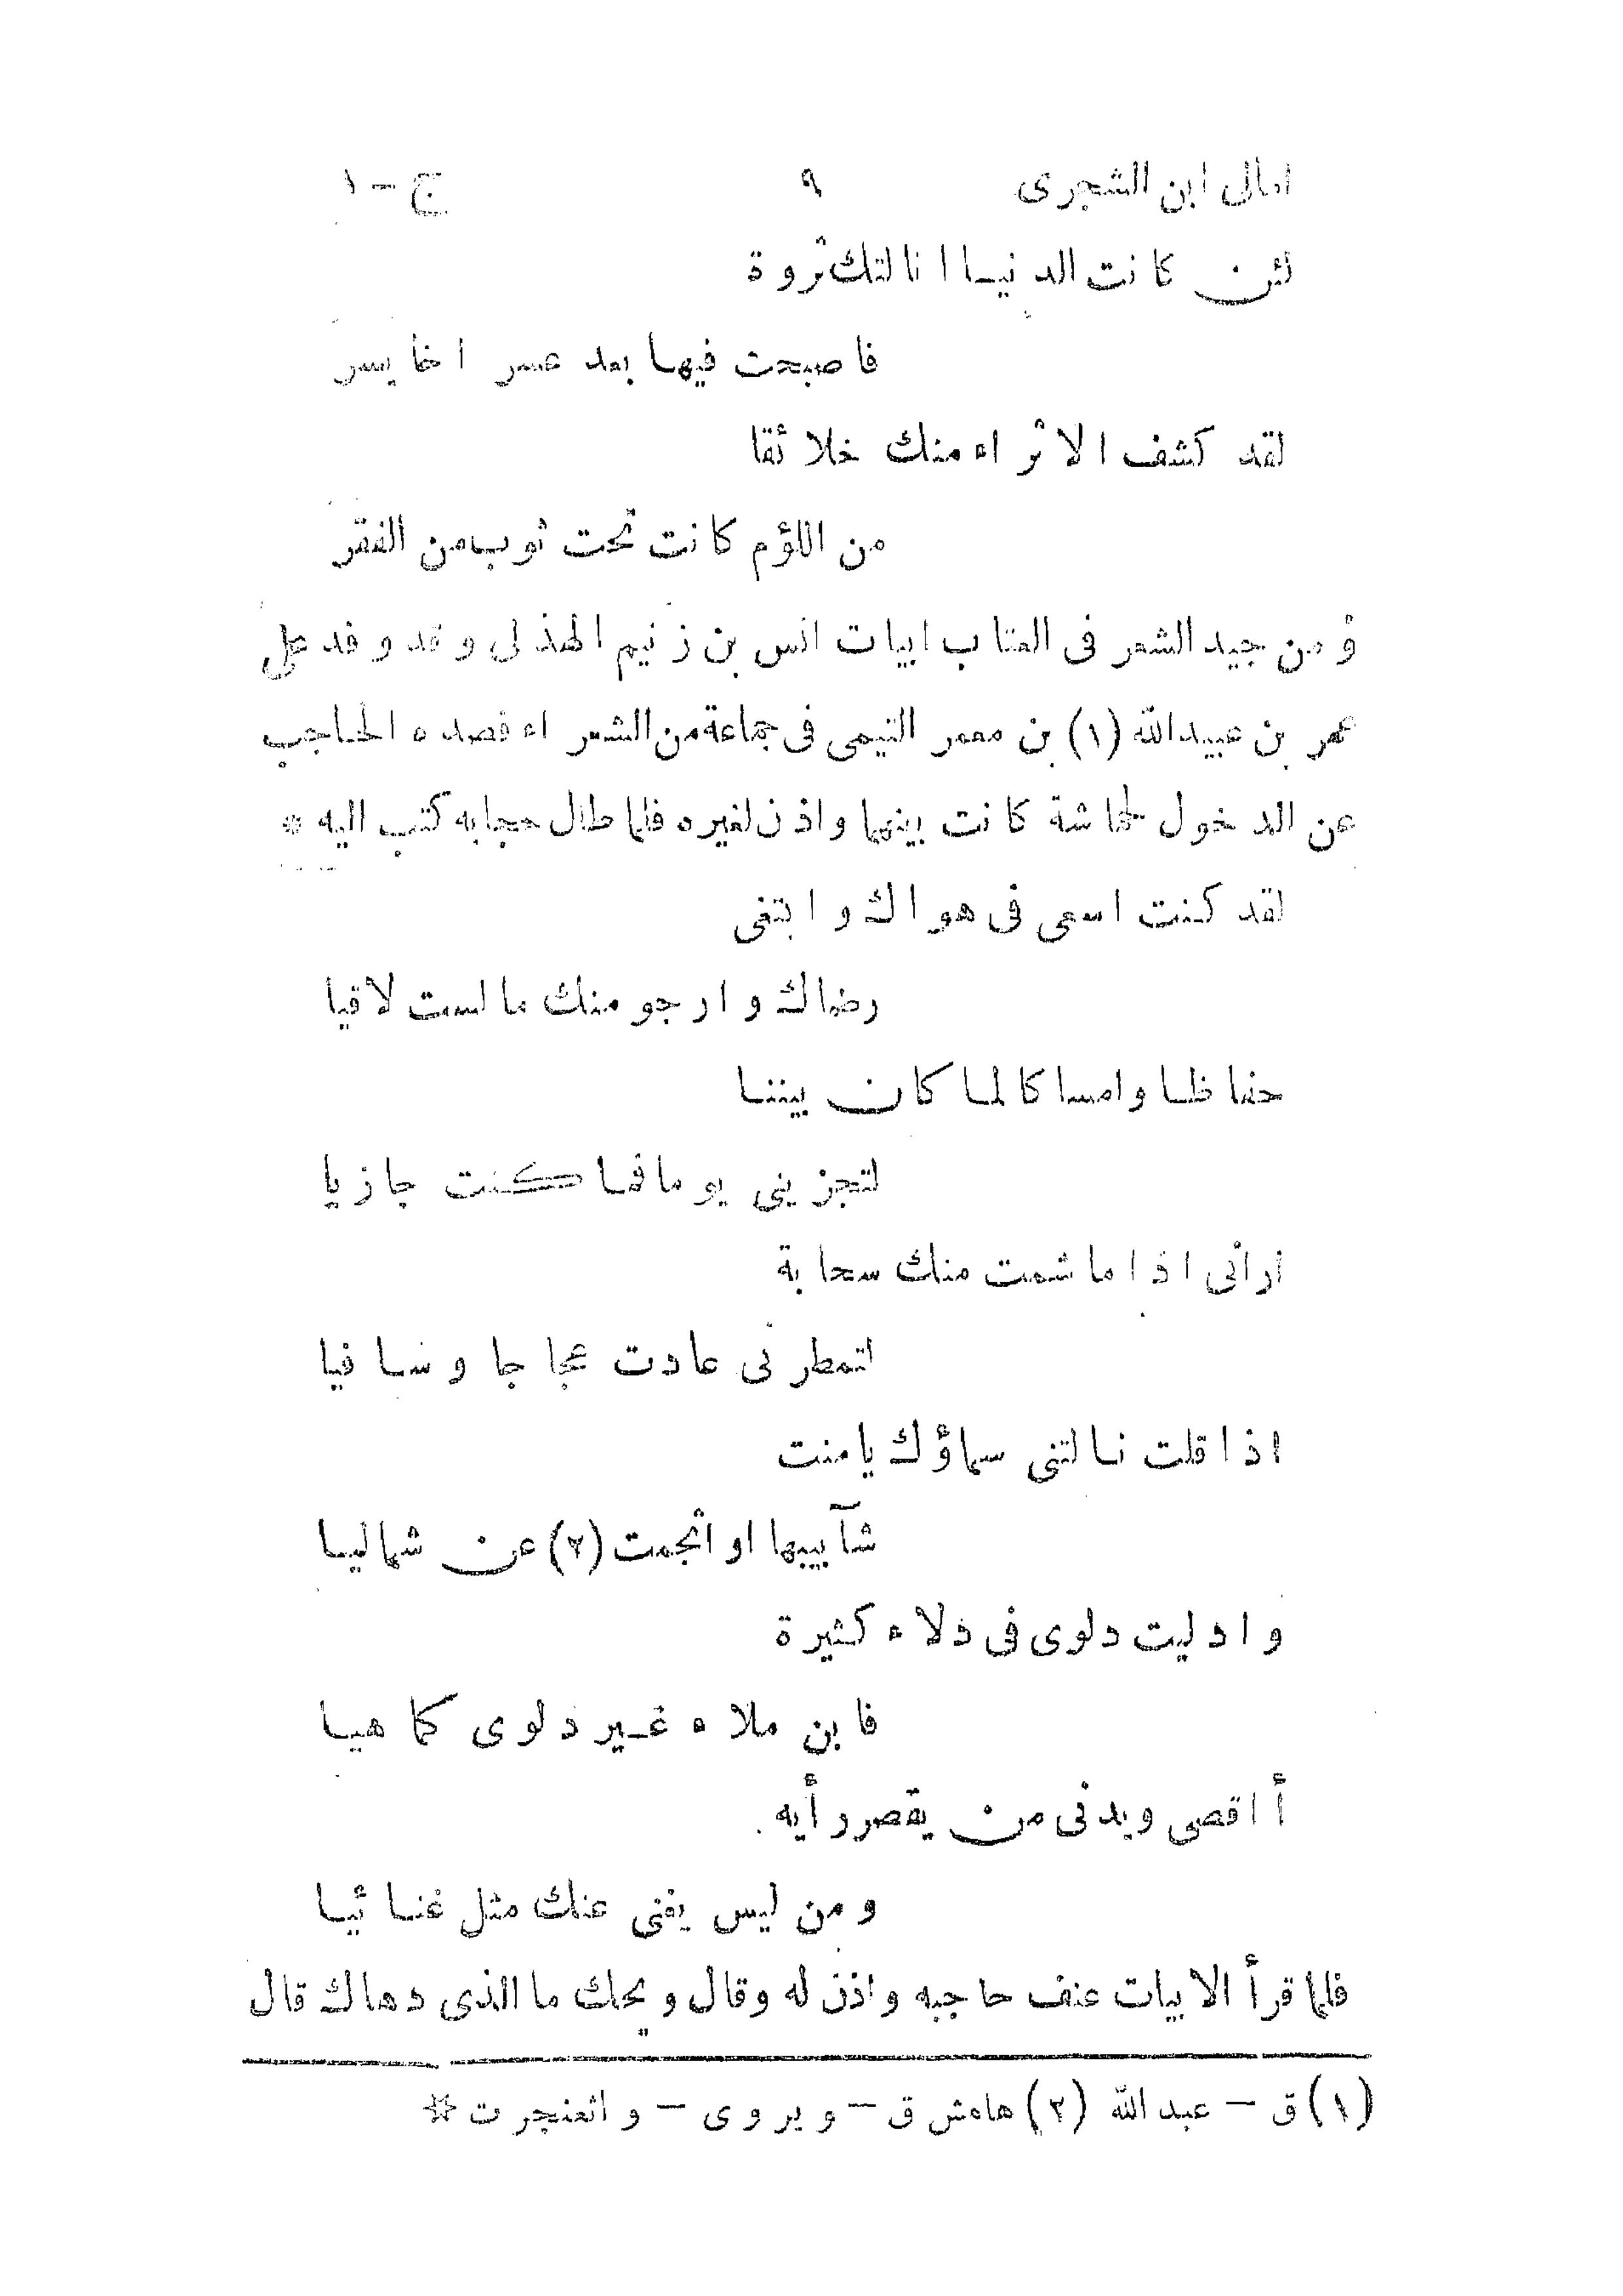 امالى ابن الشجرى ٩ ج – ١
لئن كانت الدنيا انالتك ثروة
فاصبحت فيها بعد عسر اخا يسر
لقد كشف الاثراء منك خلائقا
من اللؤم كانت تحت ثوب من الفقر
ومن جيد الشعر فى العتاب ابيات انس بن زنيم الهذلى وقد وفد على
عمر بن عبيدالله (١) بن معمر التيمى فى جماعة من الشعراء فصده الحاجب
عن الدخول لحاشة كانت بينهما واذن لغيره فلما طال حجابه كتب اليه *
لقد كنت اسعى فى هواك وابتغى
رضاك وارجو منك ما لست لاقيا
حفاظا وامساكا لما كان بيننا
لتجزينى يوما فما كنت جازيا
ارانى اذا ما شمت منك سحابة
لتمطرنى عادت عجاجا وسافيا
اذا قلت نالتنى سماؤك يامنت
شآبيبها او اثجمت (٢) عن شماليا
وادليت دلوى فى دلاء كثيرة
فابن ملاء غير دلوى كما هيا
أاقصى ويدنى من يقصر رأيه
ومن ليس يغنى عنك مثل غنائيا
فلما قرأ الابيات عنف حاجبه واذن له وقال ويحك ما الذى دهاك قال
(١) ق – عبدالله (٢) هامش ق – ويروى – واثعنجرت *